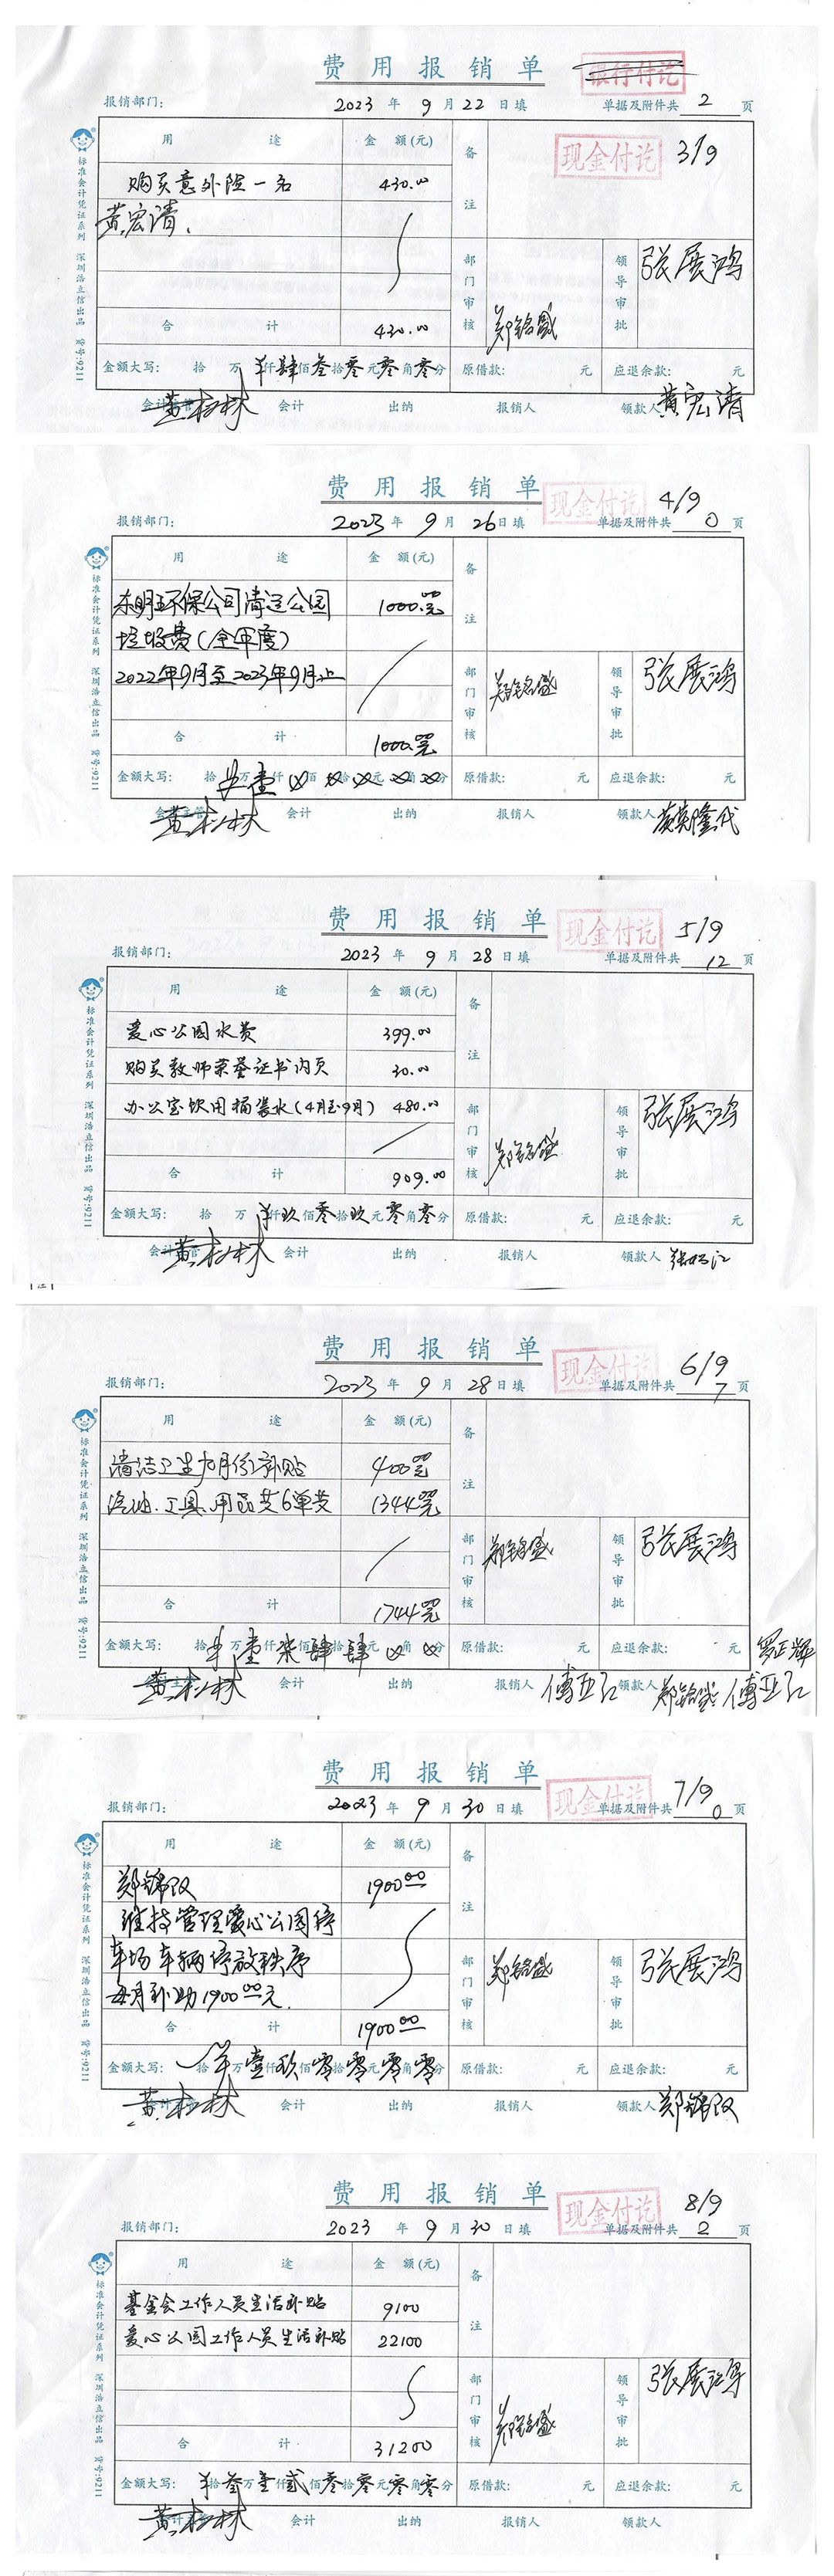 费用报销单
银行付讫
报销部门: 2023年9月22日填 单据及附件共 2 页
用途 金额(元) 备注 现金付讫 3/9
购买意外险一名 430.00
黄宏清.
部门审核 郑铭盛 领导审批 张展鸿
合计 430.00
金额大写: 拾万羊仟肆佰叁拾零元零角零分 原借款: 元 应退余款: 元
会计主管 黄松林 会计 出纳 报销人 领款人 黄宏清
标准会计凭证系列 深圳浩立信出品 货号:9211
费用报销单
现金付讫 4/9
报销部门: 2023年9月26日填 单据及附件共 0 页
用途 金额(元) 备注
东明环保公司清运公园 1000.00元
垃圾费(全年度)
2022年9月至2023年9月止
部门审核 郑铭盛 领导审批 张展鸿
合计 1000.00元
金额大写: 拾万壹仟佰拾元角分 原借款: 元 应退余款: 元
会计主管 黄松林 会计 出纳 报销人 领款人
标准会计凭证系列 深圳浩立信出品 货号:9211
费用报销单
现金付讫 5/9
报销部门: 2023年9月28日填 单据及附件共 12 页
用途 金额(元) 备注
爱心公园水费 399.00
购买教师荣誉证书内页 30.00
办公室饮用桶装水(4月至9月) 480.00
部门审核 郑铭盛 领导审批 张展鸿
合计 909.00
金额大写: 拾万羊仟玖佰零拾玖元零角零分 原借款: 元 应退余款: 元
会计主管 黄松林 会计 出纳 报销人 领款人
标准会计凭证系列 深圳浩立信出品 货号:9211
费用报销单
现金付讫 6/9
报销部门: 2023年9月28日填 单据及附件共 7 页
用途 金额(元) 备注
清洁卫生九月份补贴 400元
汽油.工具.用品共6单共 1344元
部门审核 郑铭盛 领导审批 张展鸿
合计 1744元
金额大写: 拾羊万壹仟柒佰肆拾肆元角分 原借款: 元 应退余款: 元
会计主管 黄松林 会计 出纳 报销人 傅亚红 领款人 郑铭盛 傅亚红
标准会计凭证系列 深圳浩立信出品 货号:9211
费用报销单
现金付讫 7/9
报销部门: 2023年9月30日填 单据及附件共 0 页
用途 金额(元) 备注
郑锦汉 1900.00
维持管理爱心公园停
车场车辆停放秩序
每月补助1900.00元.
部门审核 郑铭盛 领导审批 张展鸿
合计 1900.00
金额大写: 拾羊万壹仟玖佰零拾零元零角零分 原借款: 元 应退余款: 元
会计主管 黄松林 会计 出纳 报销人 领款人 郑锦汉
标准会计凭证系列 深圳浩立信出品 货号:9211
费用报销单
现金付讫 8/9
报销部门: 2023年9月30日填 单据及附件共 2 页
用途 金额(元) 备注
基金会工作人员生活补贴 9100
爱心公园工作人员生活补贴 22100
部门审核 郑铭盛 领导审批 张展鸿
合计 31200
金额大写: 羊拾叁万壹仟贰佰零拾零元零角零分 原借款: 元 应退余款: 元
会计主管 黄松林 会计 出纳 报销人 领款人
标准会计凭证系列 深圳浩立信出品 货号:9211